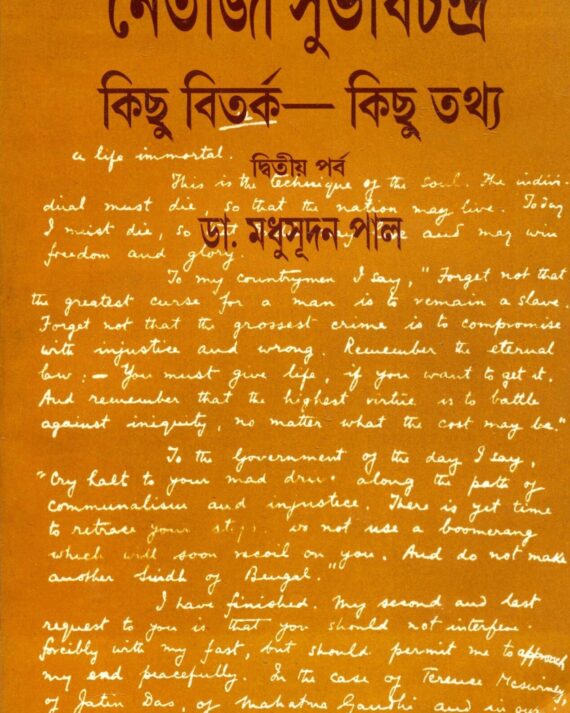 নেতাজী সুভাষচন্দ্র
কিছু বিতর্ক— কিছু তথ্য
a life immortal.
দ্বিতীয় পর্ব
This is the technique of the soul. The indivi-
dual must die, so that the nation may live. Today
I must die, so that may live and may win
ডা. মধুসূদন পাল
freedom and glory.
To my countrymen I say, "Forget not that
the greatest curse for a man is to remain a slave.
Forget not that the grossest crime is to compromise
with injustice and wrong. Remember the eternal
law: — You must give life, if you want to get it.
And remember that the highest virtue is to battle
against iniquity, no matter what the cost may be."
To the Government of the day I say,
"Cry halt to your mad drive along the path of
communalism and injustice. There is yet time
to retrace your steps. Do not use a boomerang
which will soon recoil on you. And do not make
another Sindh of Bengal."
I have finished. My second and last
request to you is that you should not interfere
forcibly with my fast, but should permit me to approach
my end peacefully. In the case of Terence Mcswiney,
of Jatin Das, of Mahatma Gandhi and in our